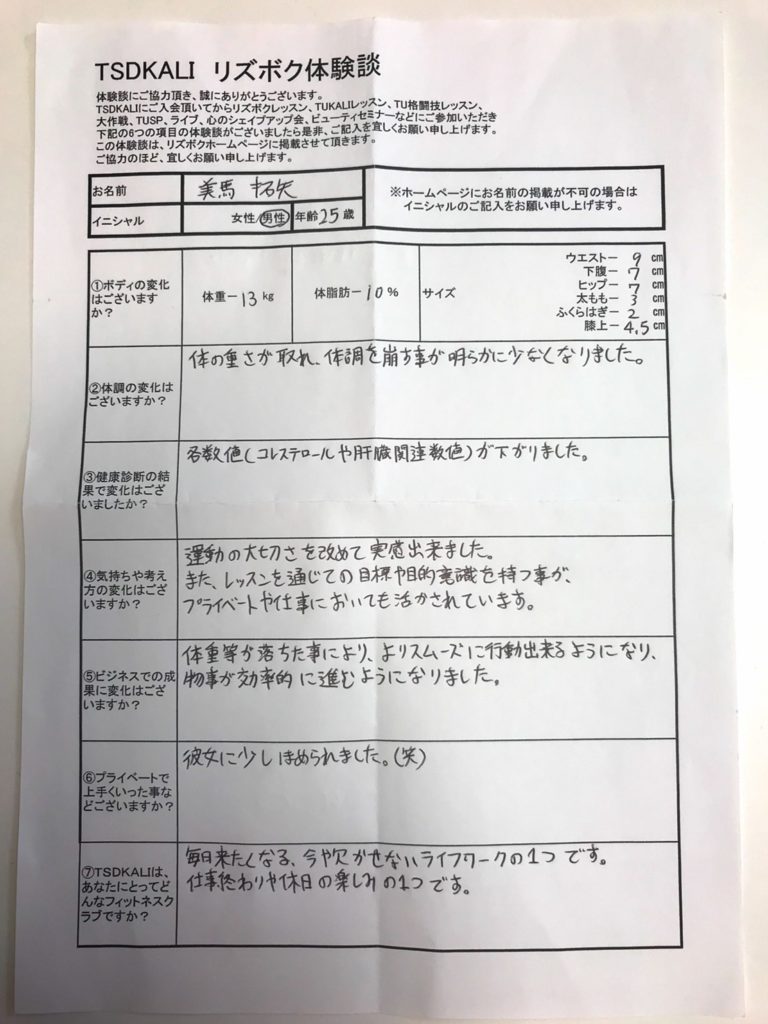 TSDKALI リズボク体験談
体験談にご協力頂き、誠にありがとうございます。
TSDKALIにご入会頂いてからリズボクレッスン、TUKALIレッスン、TU格闘技レッスン、
大作戦、TUSP、ライブ、心のシェイプアップ会、ビューティセミナーなどにご参加いただき
下記の6つの項目の体験談がございましたら是非、ご記入を宜しくお願い申し上げます。
この体験談は、リズボクホームページに掲載させて頂きます。
ご協力のほど、宜しくお願い申し上げます。
お名前 美馬 拓矢
※ホームページにお名前の掲載が不可の場合は
イニシャルのご記入をお願い申し上げます。
イニシャル 女性/男性 年齢25歳
①ボディの変化
はございます
か?
体重ー13kg
体脂肪ー10%
サイズ
ウエストー 9 cm
下腹ー 7 cm
ヒップー 7 cm
太ももー 3 cm
ふくらはぎー 2 cm
膝上ー 4.5 cm
②体調の変化は
ございますか?
体の重さが取れ、体調を崩す事が明らかに少なくなりました。
③健康診断の結
果で変化はござ
いましたか?
各数値(コレステロールや肝臓関連数値)が下がりました。
④気持ちや考え
方の変化はござ
いますか?
運動の大切さを改めて実感出来ました。
また、レッスンを通じての目標や目的意識を持つ事が、
プライベートや仕事においても活かされています。
⑤ビジネスでの成
果に変化はござ
いますか?
体重等が落ちた事により、よりスムーズに行動出来るようになり、
物事が効率的に進むようになりました。
⑥プライベートで
上手くいった事な
どございますか?
彼女に少しほめられました。(笑)
⑦TSDKALIは、
あなたにとってど
んなフィットネスク
ラブですか?
毎日来たくなる、今や欠かせないライフワークの1つです。
仕事終わりや休日の楽しみの1つです。